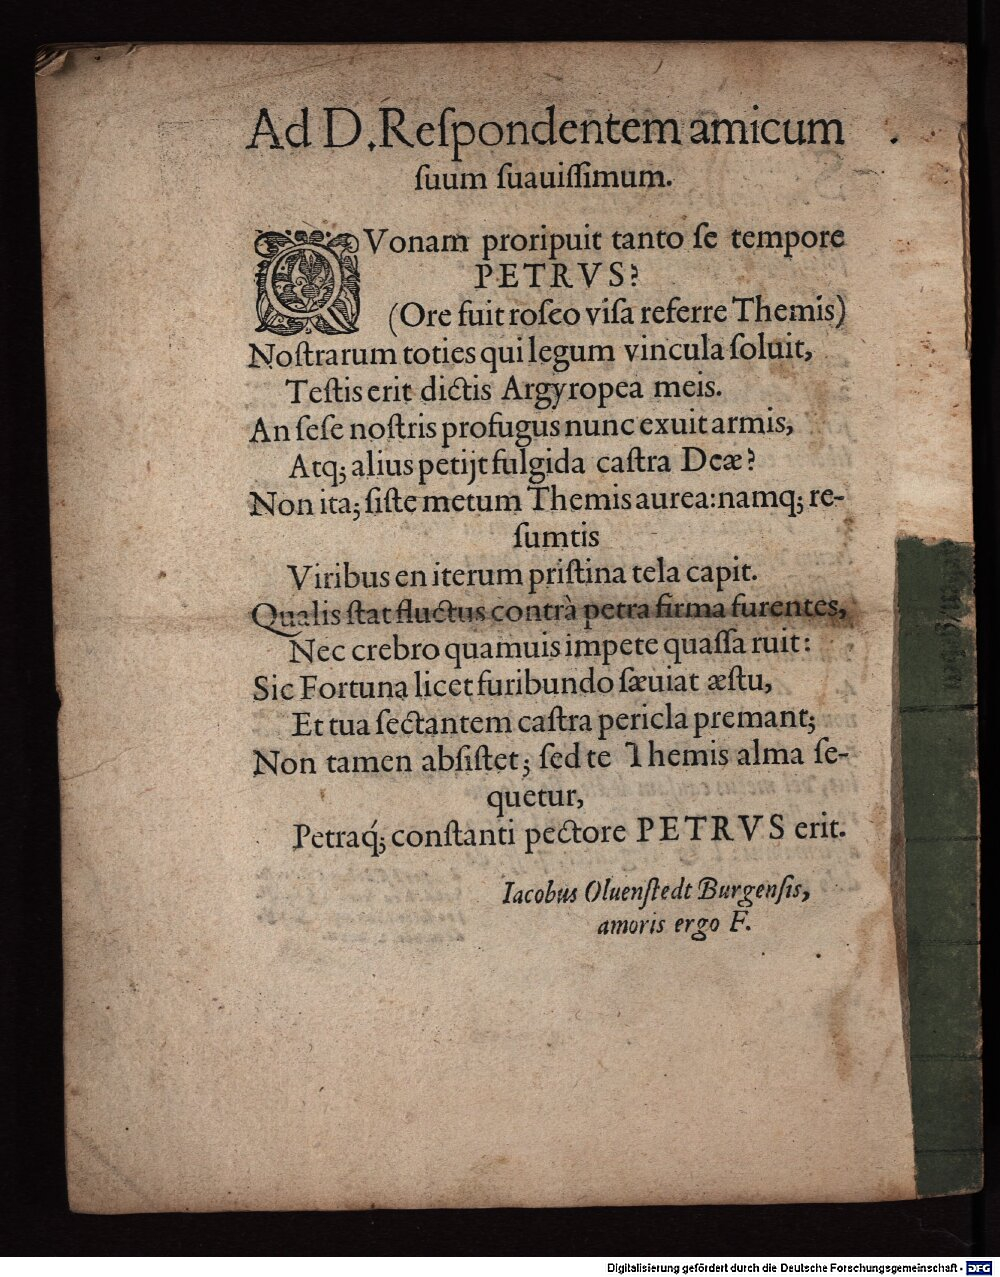 Ad D. Reſpondentem amicum
ſuum ſuauiſſimum.
QVonam proripuit tanto ſe tempore
PETRVS?
(Ore fuit roſeo viſa referre Themis)
Noſtrarum toties qui legum vincula ſoluit,
Teſtis erit dictis Argyropea meis.
An ſeſe noſtris profugus nunc exuit armis,
Atq; alius petijt fulgida caſtra Deæ?
Non ita; ſiſte metum Themis aurea: namq; re-
ſumtis
Viribus en iterum priſtina tela capit.
Qualis ſtat fluctus contrà petra firma furentes,
Nec crebro quamuis impete quaſſa ruit:
Sic Fortuna licet furibundo ſæuiat æſtu,
Et tua ſectantem caſtra pericla premant;
Non tamen abſiſtet; ſed te Themis alma ſe-
quetur,
Petraq́; conſtanti pectore PETRVS erit.
Iacobus Oluenſtedt Burgenſis,
amoris ergo F.
Digitalisierung gefördert durch die Deutsche Forschungsgemeinschaft - DFG